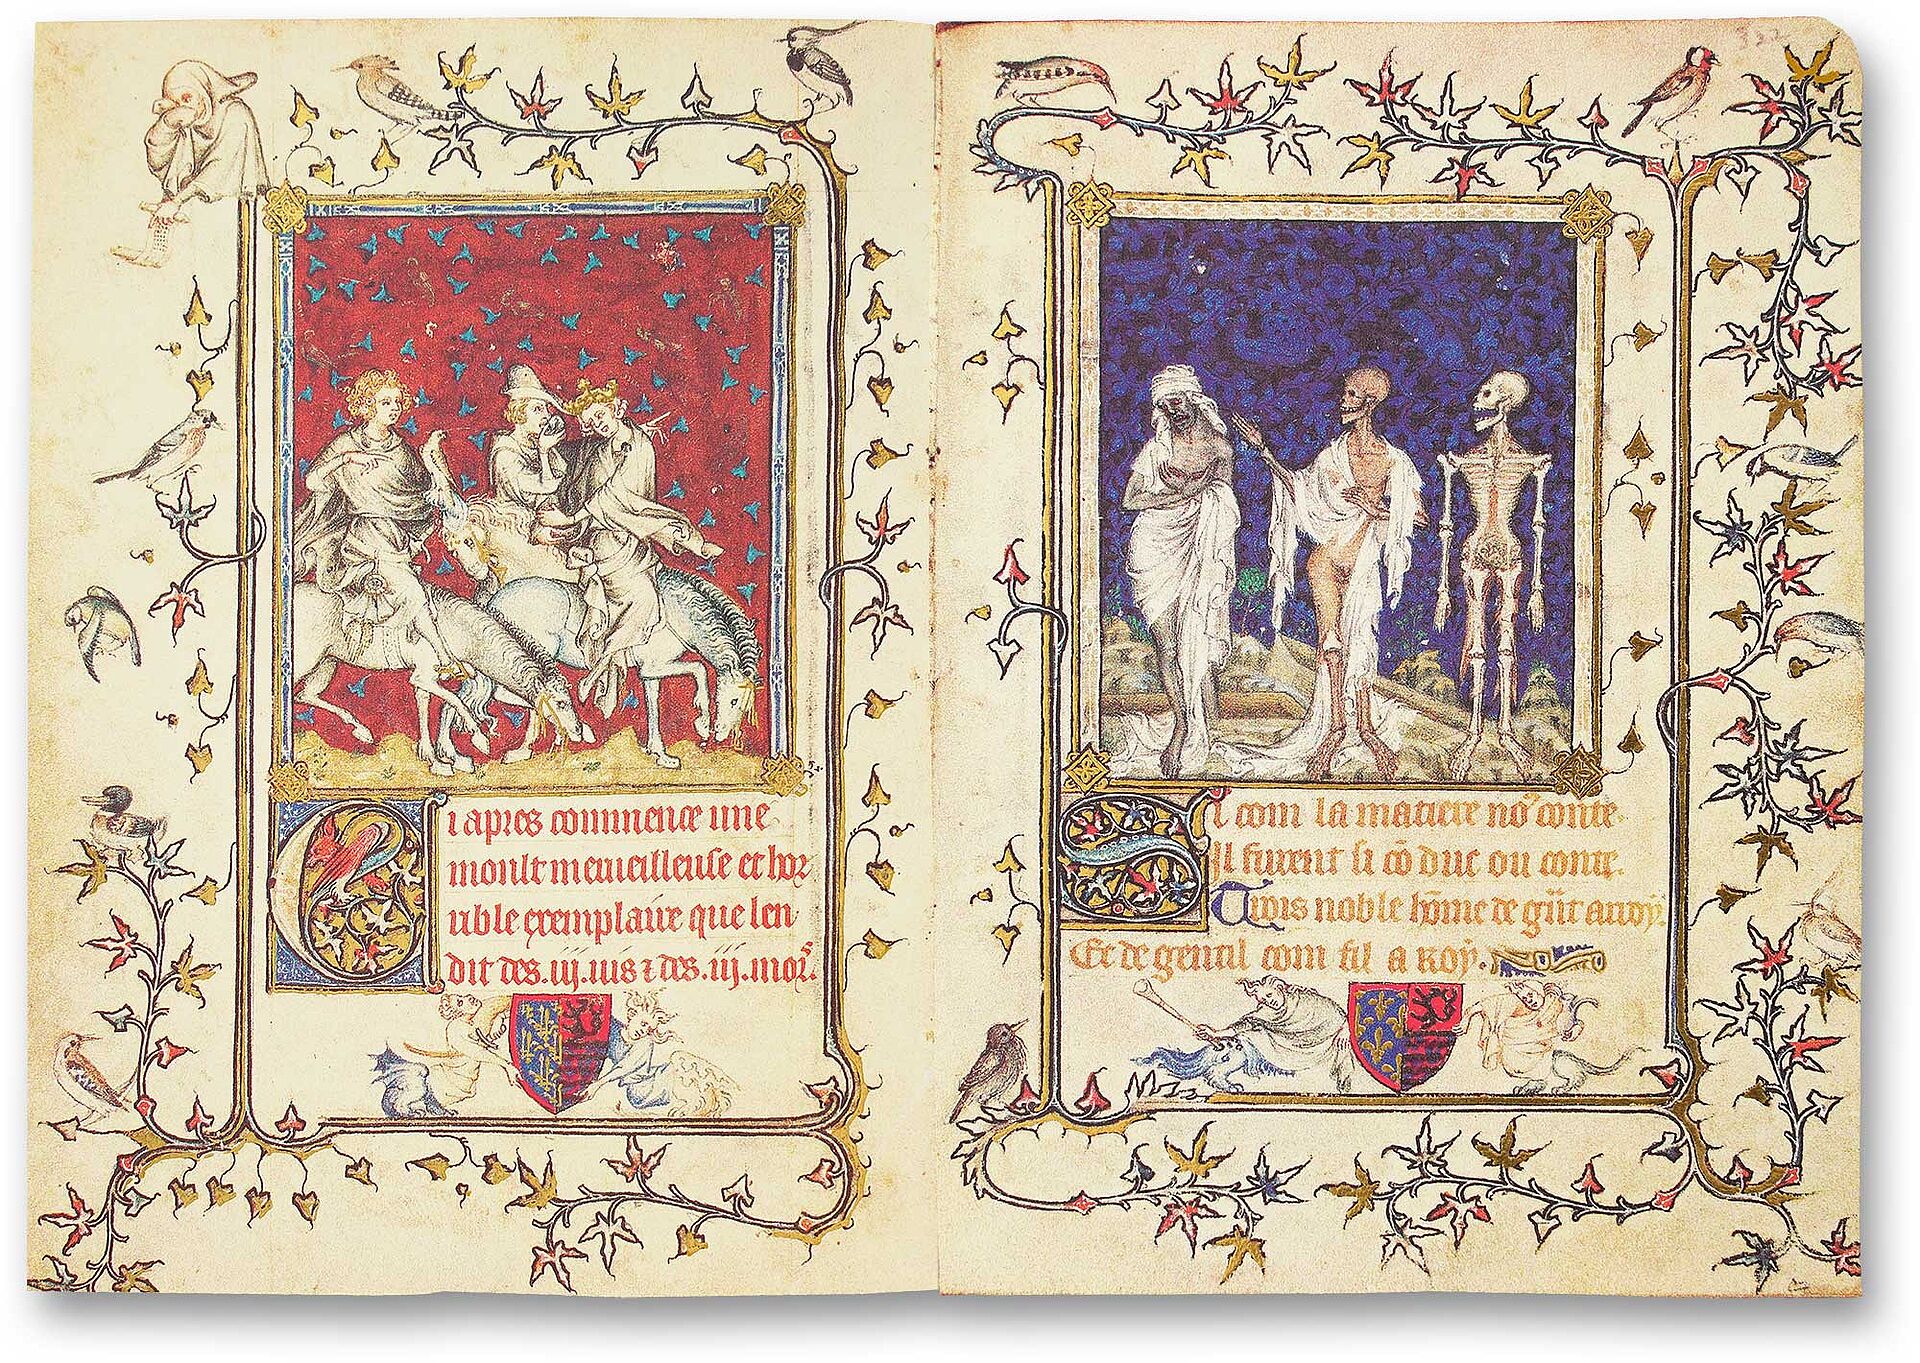 Ci apres commence une
moult merueilleuse et hor
rible exemplaire que len
dit des .iij. uis ⁊ des .iij. mors.
Si com la matiere no9 conte.
Il furent si cō duc ou conte.
Trois noble hōme de gñt arroy.
Et de gentil com fil a roy.